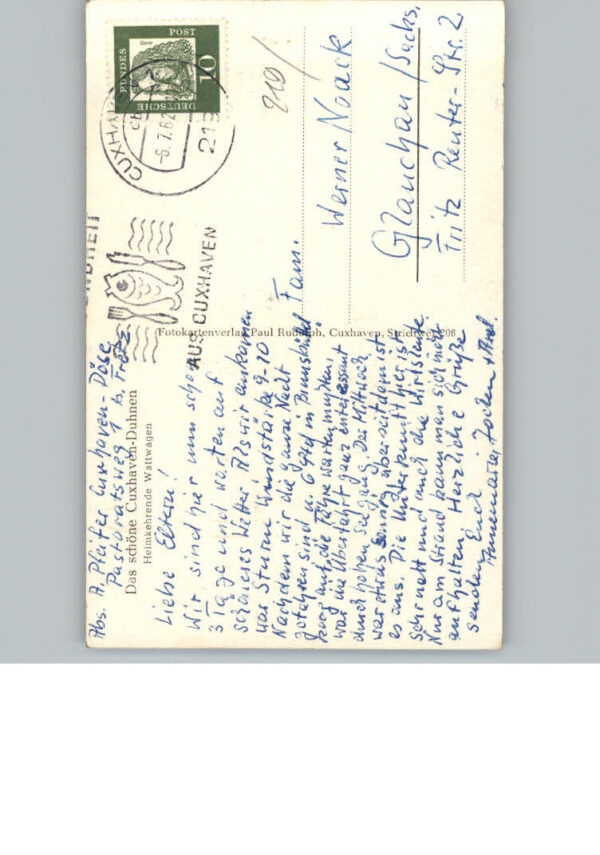 Abs. A. Pfeifer Cuxhaven-Döse
Pastoratsweg b. Frotz
Das schöne Cuxhaven-Duhnen
Heimkehrende Wattwagen
Liebe Eltern!
Wir sind hier nun schon
3 Tage und warten auf
schöneres Wetter. Als wir ankamen
war Sturm Windstärke 9-10
Nachdem wir die ganze Nacht
gefahren sind u. 6 Std in Brunsbüttel
koog auf die Fähre warten mußten,
war die Überfahrt ganz interessant
durch hohen Seegang. Der Mittwoch
war etwas sonnig, aber seitdem ist
es aus. Die Unterkunft hier ist
sehr nett und auch die Wirtsleute.
Nur am Strand kann man sich nicht
aufhalten. Herzliche Grüße
senden Euch
Annemarie, Jochen u.
Fotokartenverlag Paul Rudolph, Cuxhaven, Strichweg 206
DEUTSCHE
BUNDES
POST
10
Dürer
CUXHAVEN
-6.7.62
219
AUS CUXHAVEN
219/
Fam.
Werner Noack
Glauchau/Sachs.
Fritz Reuter-Str. 2